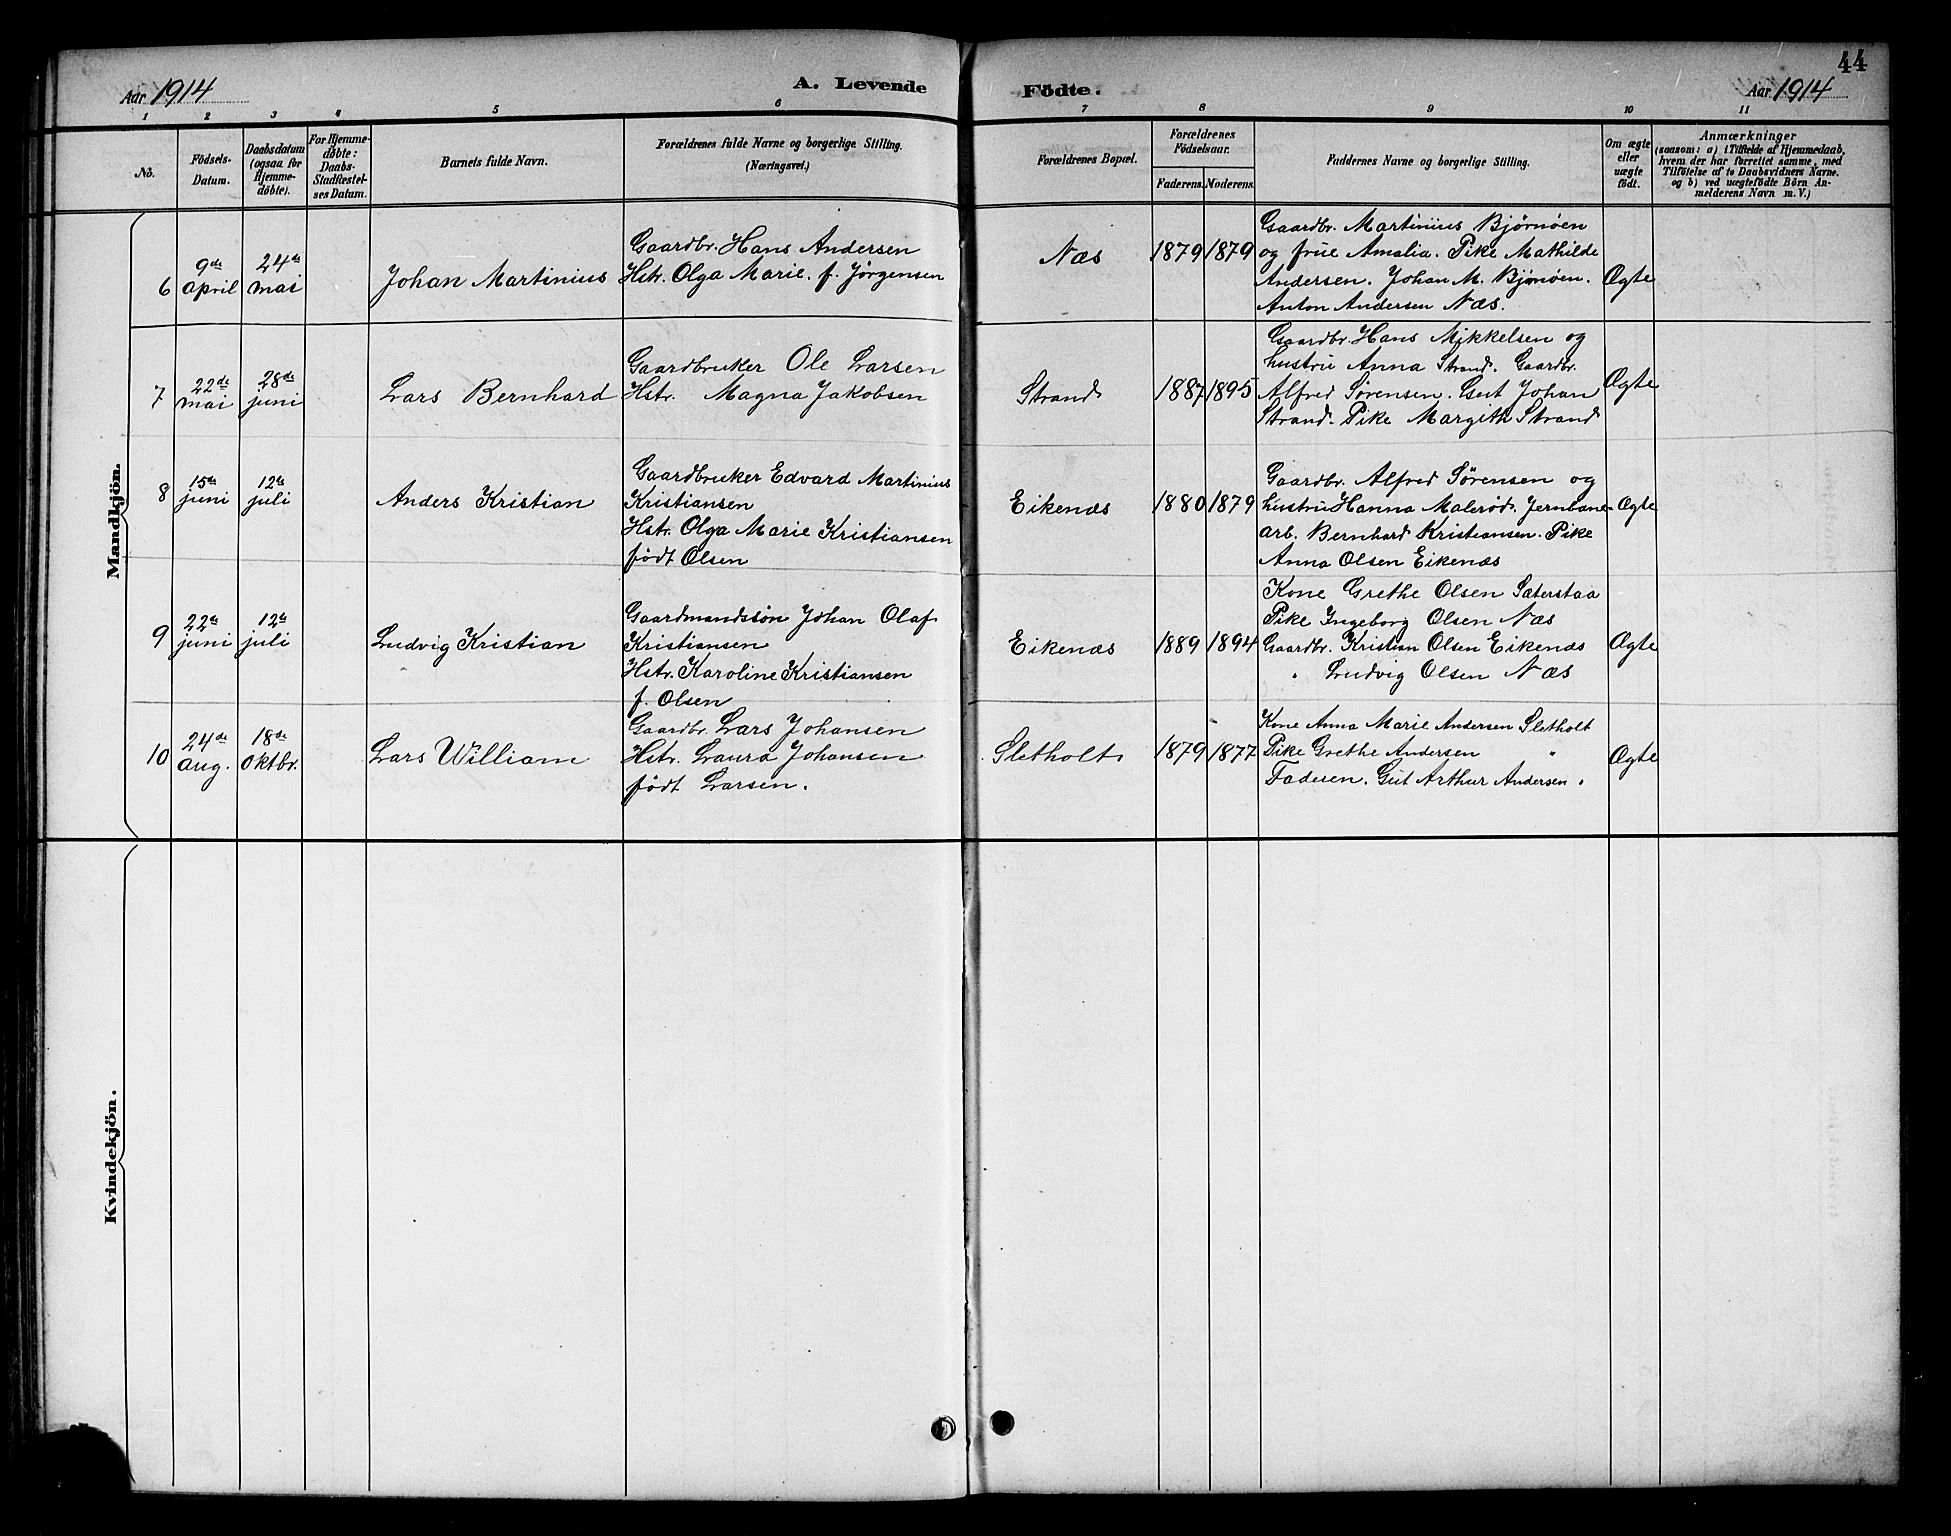 44
Aar 1914
A. Levende
Födte.
Aar 1914
1 2 3 4 5 6 7 8 9 10 11
No.
Födsels-
Datum.
Daabsdatum
(ogsaa for
Hjemme-
döbte).
For Hjemme-
döbte:
Daabs-
Stadfæstel-
ses Datum.
Barnets fulde Navn.
Forældrenes fulde Navne og borgerlige Stilling.
(Næringsvei.)
Forældrenes Bopæl.
Forældrenes
Födselsaar.
Faderens. Moderens.
Faddernes Navne og borgerlige Stilling.
Om ægte
eller
uægte
födt.
Anmærkninger
(saasom: a) i Tilfælde af Hjemmedaab,
hvem der har forrettet samme, med
Tilföielse af to Daabsvidners Navne.
og b) ved uægtefödte Börn An-
melderens Navn m. V.)
Mandkjön.
6
9de
april
24de
mai
Johan Martinius
Gaardbr. Hans Andersen
Hstr. Olga Marie. f. Jørgensen
Næs
1879 1879
Gaardbr. Martinius Bjørnøen
og frue Amalia. Pike Mathilde
Andersen. Johan M. Bjørnøen.
Anton Andersen Næs.
Ægte
7
22de
mai
28de
juni
Lars Bernhard
Gaardbruker Ole Larsen
Hstr. Magna Jakobsen
Strand
1887 1895
Gaardbr. Hans Mikkelsen og
hustru Anna Strand. Gaardbr.
Alfred Sørensen. Gut Johan
Strand. Pike Margith Strand
Ægte
8
15de
juni
12te
juli
Anders Kristian
Gaardbruker Edvard Martinius
Kristiansen
Hstr. Olga Marie Kristiansen
født Olsen
Eikenæs
1880 1879
Gaardbr. Alfred Sørensen og
hustru Hanna Malerød. Jernbane-
arb. Bernhard Kristiansen. Pike
Anna Olsen Eikenæs
Ægte
9
22de
juni
12te
juli
Ludvig Kristian
Gaardmandssøn Johan Olaf
Kristiansen
Hstr. Karoline Kristiansen
f. Olsen
Eikenæs
1889 1894
Kone Grethe Olsen Sæterstaa
Pike Ingeborg Olsen Næs
Gaardbr. Kristian Olsen Eikenæs
" Ludvig Olsen Næs
Ægte
10
24de
aug.
18de
oktbr.
Lars William
Gaardbr. Lars Johansen
Hstr. Laura Johansen
født Larsen.
Sletholt
1879 1877
Kone Anna Marie Andersen Sletholt
Pike Grethe Andersen "
Faderen. Gut Arthur Andersen "
Ægte
Kvindekjön.